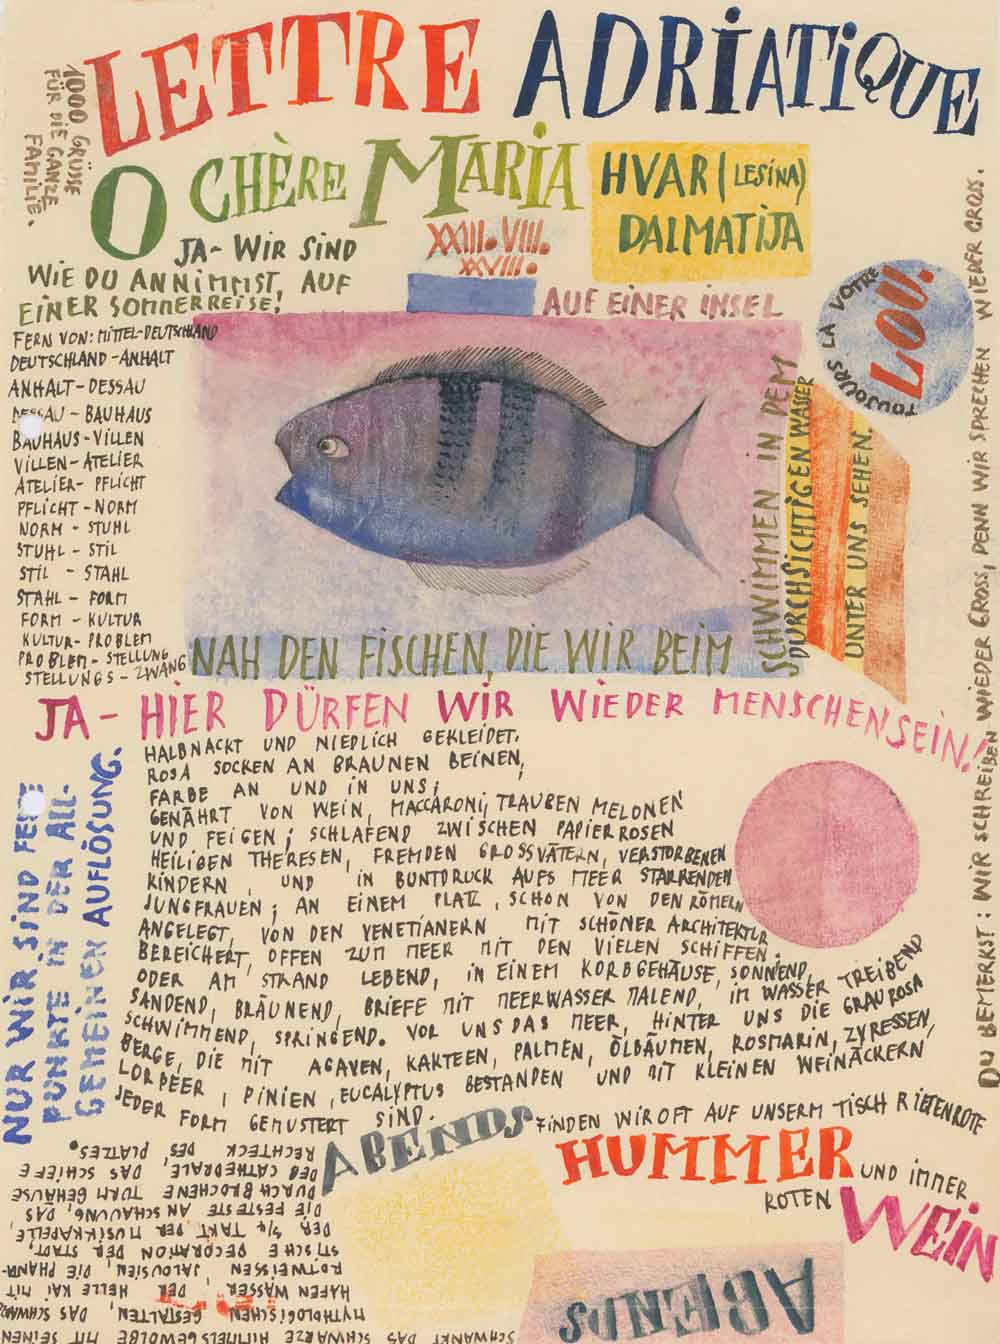 LETTRE ADRIATIQUE
1000 GRÜSSE
FÜR DIE GANZE
FAMILIE.
O CHÈRE MARIA
HVAR (LESINA)
DALMATIJA
XXIII. VIII.
XXVIII.
JA - WIR SIND
WIE DU ANNIMMST, AUF
EINER SOMMERREISE!
AUF EINER INSEL
TOUJOURS LA VOTRE
LOU.
FERN VON: MITTEL-DEUTSCHLAND
DEUTSCHLAND - ANHALT
ANHALT - DESSAU
DESSAU - BAUHAUS
BAUHAUS - VILLEN
VILLEN - ATELIER
ATELIER - PFLICHT
PFLICHT - NORM
NORM - STUHL
STUHL - STIL
STIL - STAHL
STAHL - FORM
FORM - KULTUR
KULTUR - PROBLEM
PROBLEM - STELLUNG
STELLUNGS - ZWANG
NAH DEN FISCHEN, DIE WIR BEIM
SCHWIMMEN IN DEM
DURCHSICHTIGEN WASSER
UNTER UNS SEHEN.
JA - HIER DÜRFEN WIR WIEDER MENSCHENSEIN!
HALBNACKT UND NIEDLICH GEKLEIDET.
ROSA SOCKEN AN BRAUNEN BEINEN,
FARBE AN UND IN UNS;
GENÄHRT VON WEIN, MACCARONI, TRAUBEN MELONEN
UND FEIGEN; SCHLAFEND ZWISCHEN PAPIERROSEN
HEILIGEN THERESEN, FREMDEN GROSSVÄTERN, VERSTORBENEN
KINDERN, UND IN BUNTDRUCK AUFS MEER STARRENDEN
JUNGFRAUEN; AN EINEM PLATZ, SCHON VON DEN RÖMERN
ANGELEGT, VON DEN VENETIANERN MIT SCHÖNER ARCHITEKTUR
BEREICHERT, OFFEN ZUM MEER MIT DEN VIELEN SCHIFFEN.
ODER AM STRAND LEBEND, IN EINEM KORBGEHÄUSE, SONNEND,
SANDEND, BRÄUNEND, BRIEFE MIT MEERWASSER MALEND, IM WASSER TREIBEND
SCHWIMMEND, SPRINGEND. VOR UNS DAS MEER, HINTER UNS DIE GRAUROSA
BERGE, DIE MIT AGAVEN, KAKTEEN, PALMEN, ÖLBÄUMEN, ROSMARIN, ZYRESSEN,
LORPEER, PINIEN, EUCALYPTUS BESTANDEN UND MIT KLEINEN WEINÄCKERN
JEDER FORM GEMUSTERT SIND.
NUR WIR SIND FESTE
PUNKTE IN DER ALL-
GEMEINEN AUFLÖSUNG.
DU BEMERKST: WIR SCHREIBEN WIEDER GROSS, DENN WIR SPRECHEN WIEDER GROSS.
ABENDS FINDEN WIR OFT AUF UNSERM TISCH RIESENROTE
HUMMER UND IMMER
ROTEN WEIN
ABENDS
SCHWANKT DAS SCHWARZE HIMMELSGEWÖLBE MIT SEINEN
MYTHOLOGISCHEN GESTALTEN, DAS SCHWARZE
HAFEN WASSER, DER HELLE KAI MIT
ROTWEISSEN JALOUSIEN, DIE PHANTA-
STISCHE DECORATION DER STADT,
DER 5/4 TAKT DER MUSIKKAPELLE,
DIE FESTESTE ANSCHAUUNG, DAS
DURCHBROCHENE TURM GEHÄUSE
DER CATHEDRALE, DAS SCHIEFE
RECHTECK DES PLATZES.